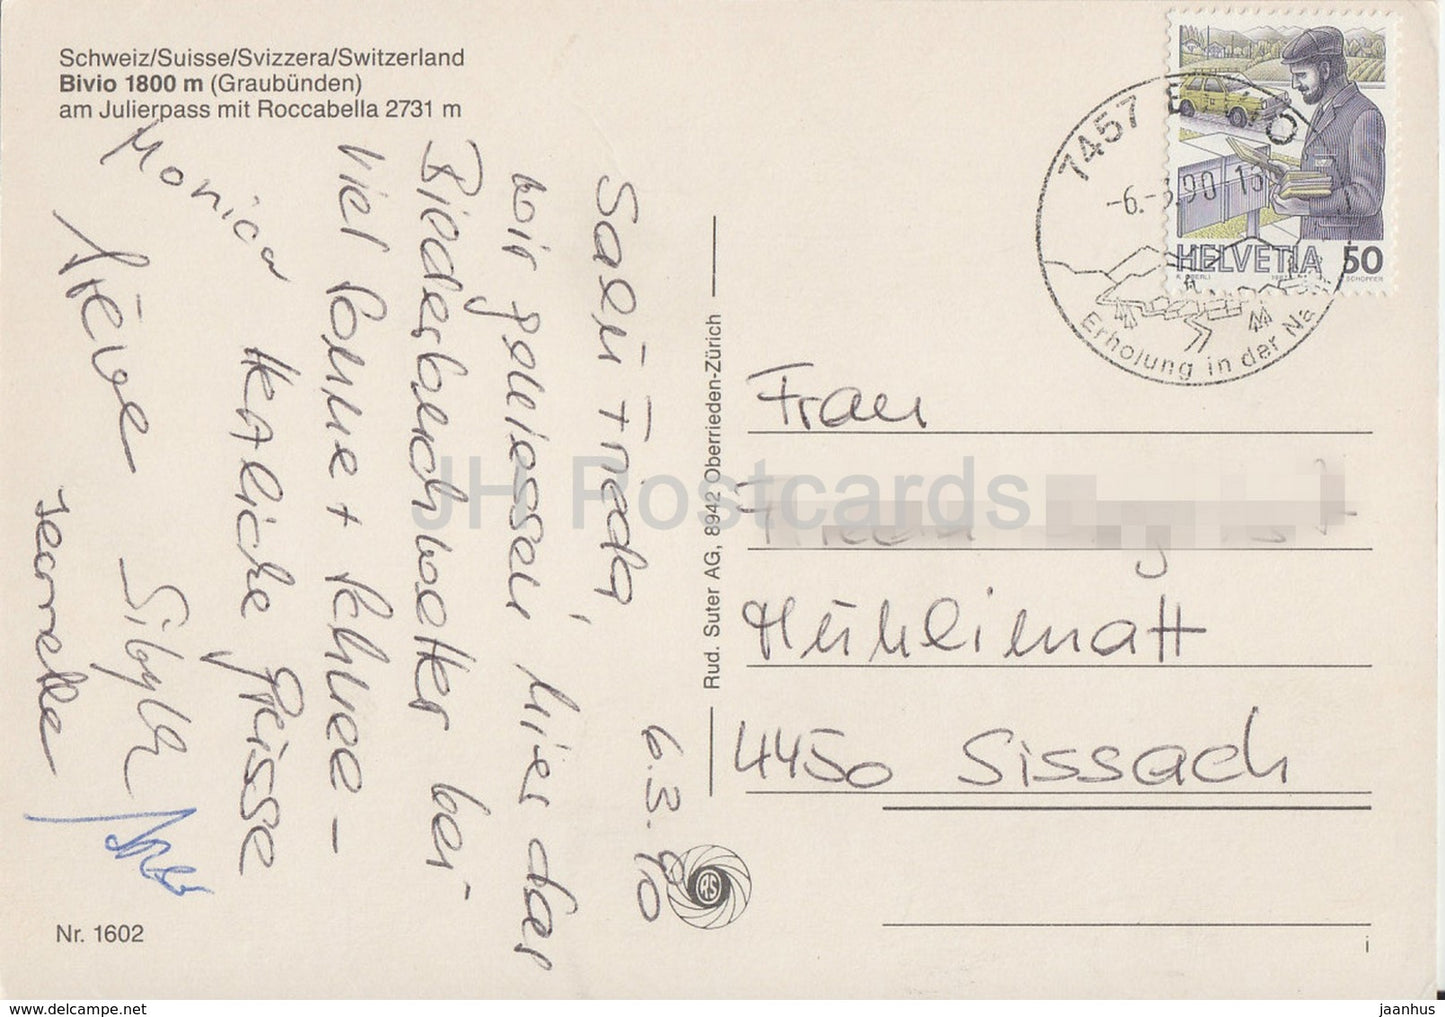 Schweiz/Suisse/Svizzera/Switzerland
Bivio 1800 m (Graubünden)
am Julierpass mit Roccabella 2731 m
6.3.90
Sali Frieda,
wir geniessen hier das
Bilderbuchwetter bei
viel Sonne + Schnee –
Herzliche Grüsse
Monica
Sibylle
Jeannette
Nr. 1602
Rud. Suter AG, 8942 Oberrieden-Zürich
RS
7457
-6.-3.90
Erholung in der Na
HELVETIA 50
Frau
Mühlimatt
4450 Sissach
i
JH Postcards
www.delcampe.net
jaanhus